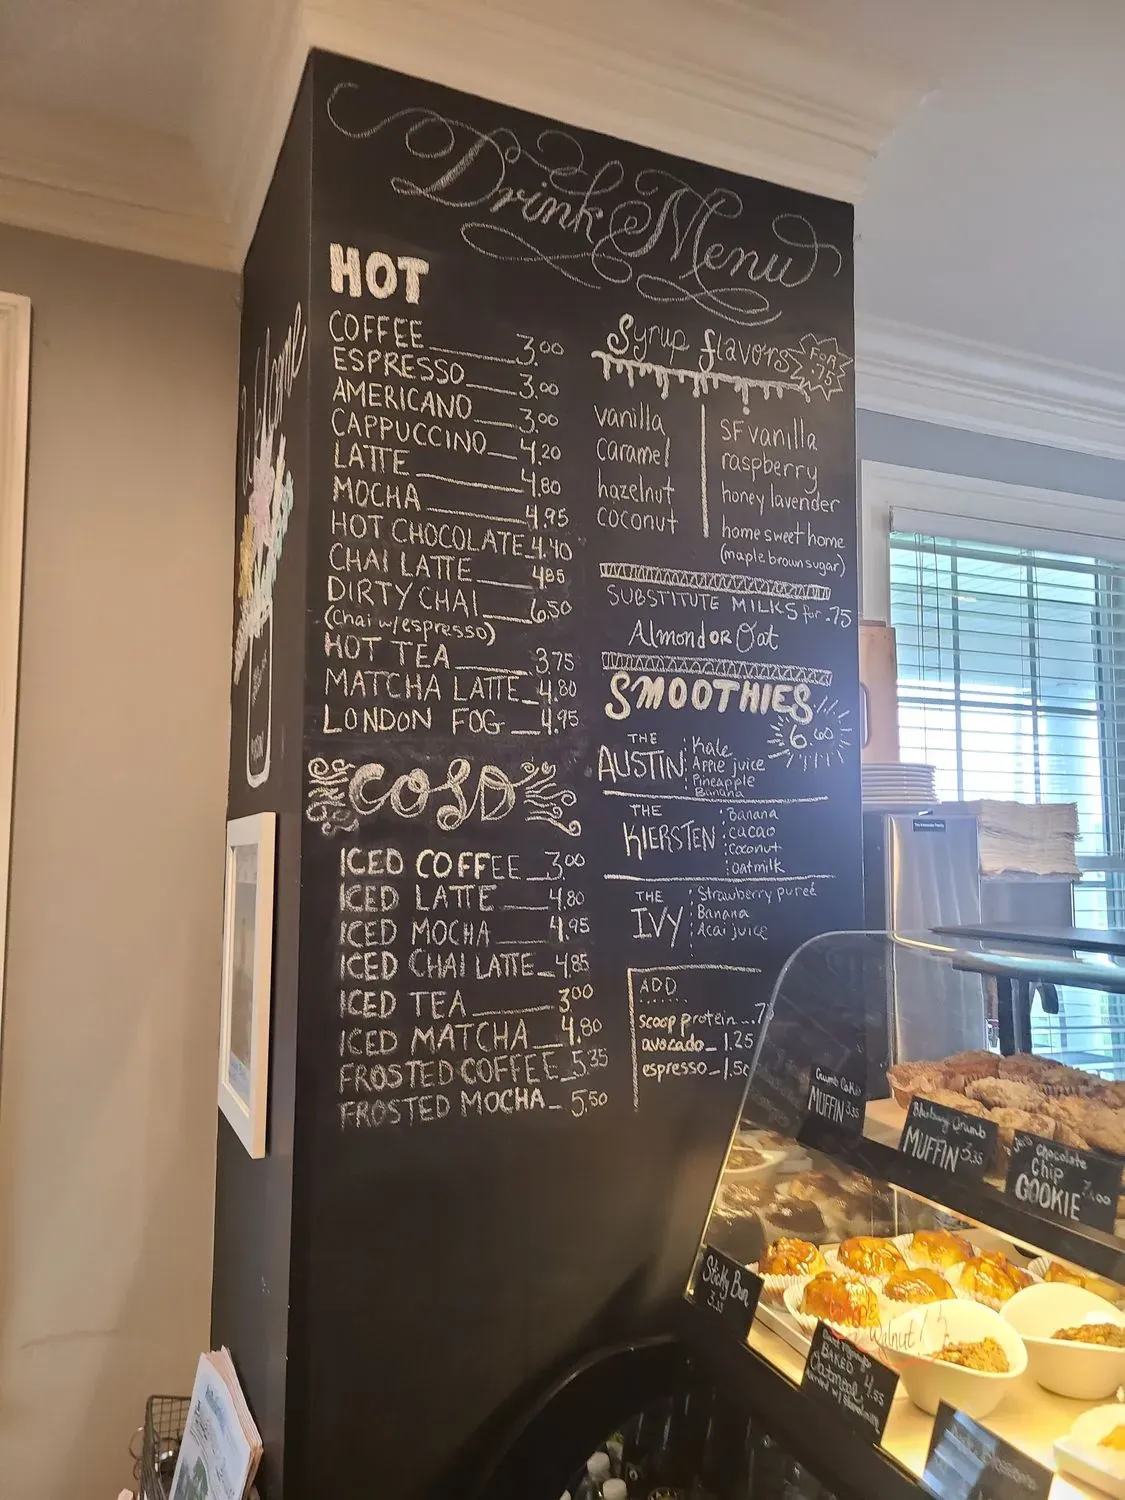 Drink Menu
HOT
COFFEE 3.00
ESPRESSO 3.00
AMERICANO 3.00
CAPPUCCINO 4.20
LATTE 4.80
MOCHA 4.95
HOT CHOCOLATE 4.40
CHAI LATTE 4.85
DIRTY CHAI 6.50
(Chai w/espresso)
HOT TEA 3.75
MATCHA LATTE 4.80
LONDON FOG 4.95
COLD
ICED COFFEE 3.00
ICED LATTE 4.80
ICED MOCHA 4.95
ICED CHAI LATTE 4.85
ICED TEA 3.00
ICED MATCHA 4.80
FROSTED COFFEE 5.35
FROSTED MOCHA 5.50
Syrup flavors
FOR
.75
vanilla
caramel
hazelnut
coconut
SF vanilla
raspberry
honey lavender
home sweet home
(maple brown sugar)
SUBSTITUTE MILKS for .75
Almond OR Oat
SMOOTHIES
6.60
THE
AUSTIN
Kale
Apple juice
Pineapple
Banana
THE
KIERSTEN
Banana
cacao
coconut
oatmilk
THE
IVY
Strawberry pureé
Banana
Acai juice
ADD
scoop protein
avocado 1.25
espresso 1.50
Welcome
Crumb Cake
MUFFIN 3.35
Blueberry Crumb
MUFFIN 3.35
chocolate
chip
COOKIE
Sticky Bun
Walnut
BAKED
Oatmeal 4.55